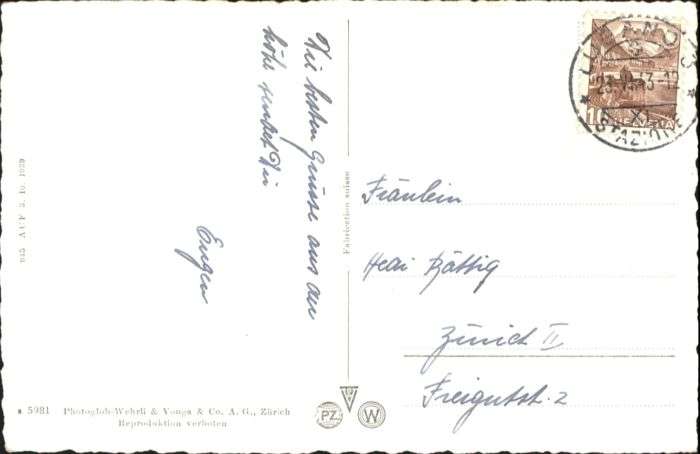 Die besten Grüsse aus der
höhe sendet Dir
Eugen
Fräulein
Hedi Bättig
Zürich II
Freigutstr. 2
LUGANO 3
23. VI. 43 - 12
XI
STAZIONE
10 HELVETIA
Fabrication suisse
645 A.f.V. 3. 10. 1939
5981 Photoglob-Wehrli & Vouga & Co. A. G., Zürich
Reproduktion verboten
PZ
W